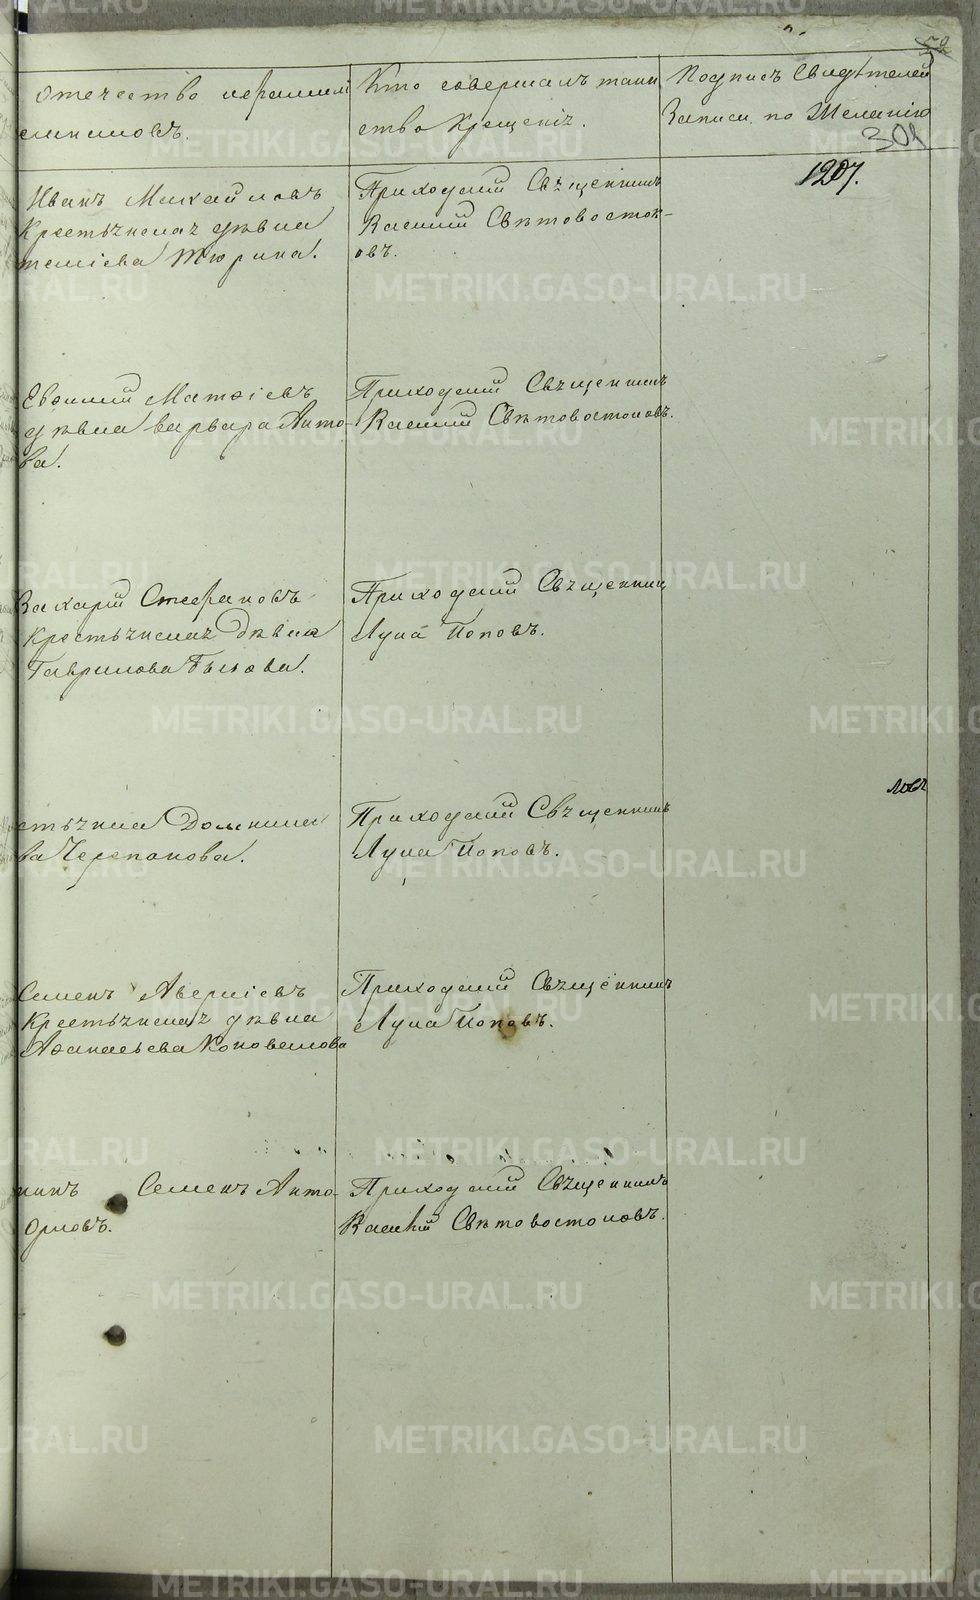 52
отечество и фамилiи
Кто совершалъ таин
Подпись Свидѣтелей
ство Крещенiя.
Записи по Желанiю
301
1207.
Иванъ Михайловъ
Крестьянская дѣвка
Тюрина.
Приходскiй Священникъ
Василiй Свѣтовосток-
овъ.
Евѳимiй Матѳiевъ
дѣвка Варвара Анто-
ва.
Приходскiй Священникъ
Василiй Свѣтовостоковъ.
Захарiй Стефановъ
Крестьянская Дѣвка
Гаврилова Бысова.
Приходскiй Священник
Лука Поповъ.
стьянка Домники
ва Черепанова.
Приходскiй Священникъ
Лука Поповъ.
Семенъ Аверкiевъ
Крестьянская дѣвка
Аѳанасьева Коновалова
Приходскiй Священникъ
Лука Поповъ.
нинъ Семенъ Анто-
Орловъ.
Приходскiй Священникъ
Василiй Свѣтовостоковъ.
METRIKI.GASO-URAL.RU